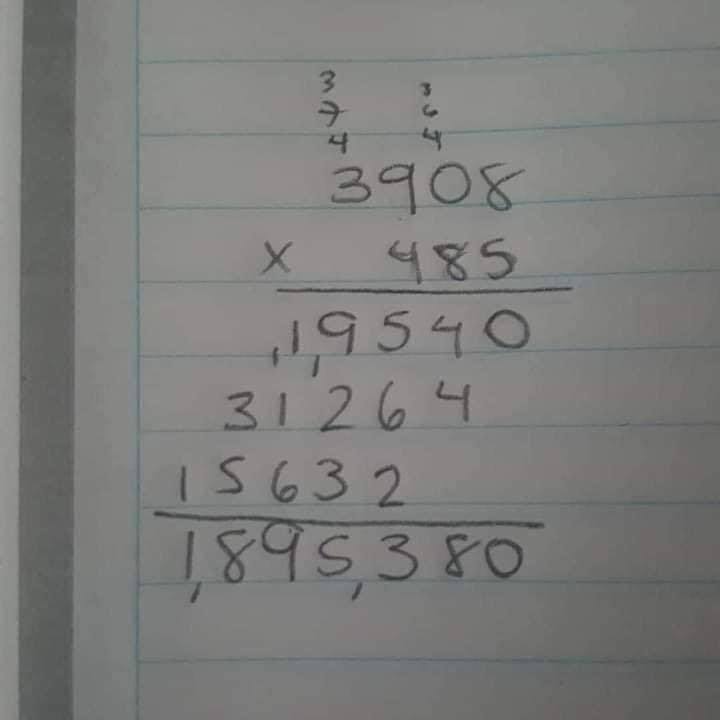 3 3
7 6
4 4
3908
x 485
1,9540
31264
15632
1,895,380